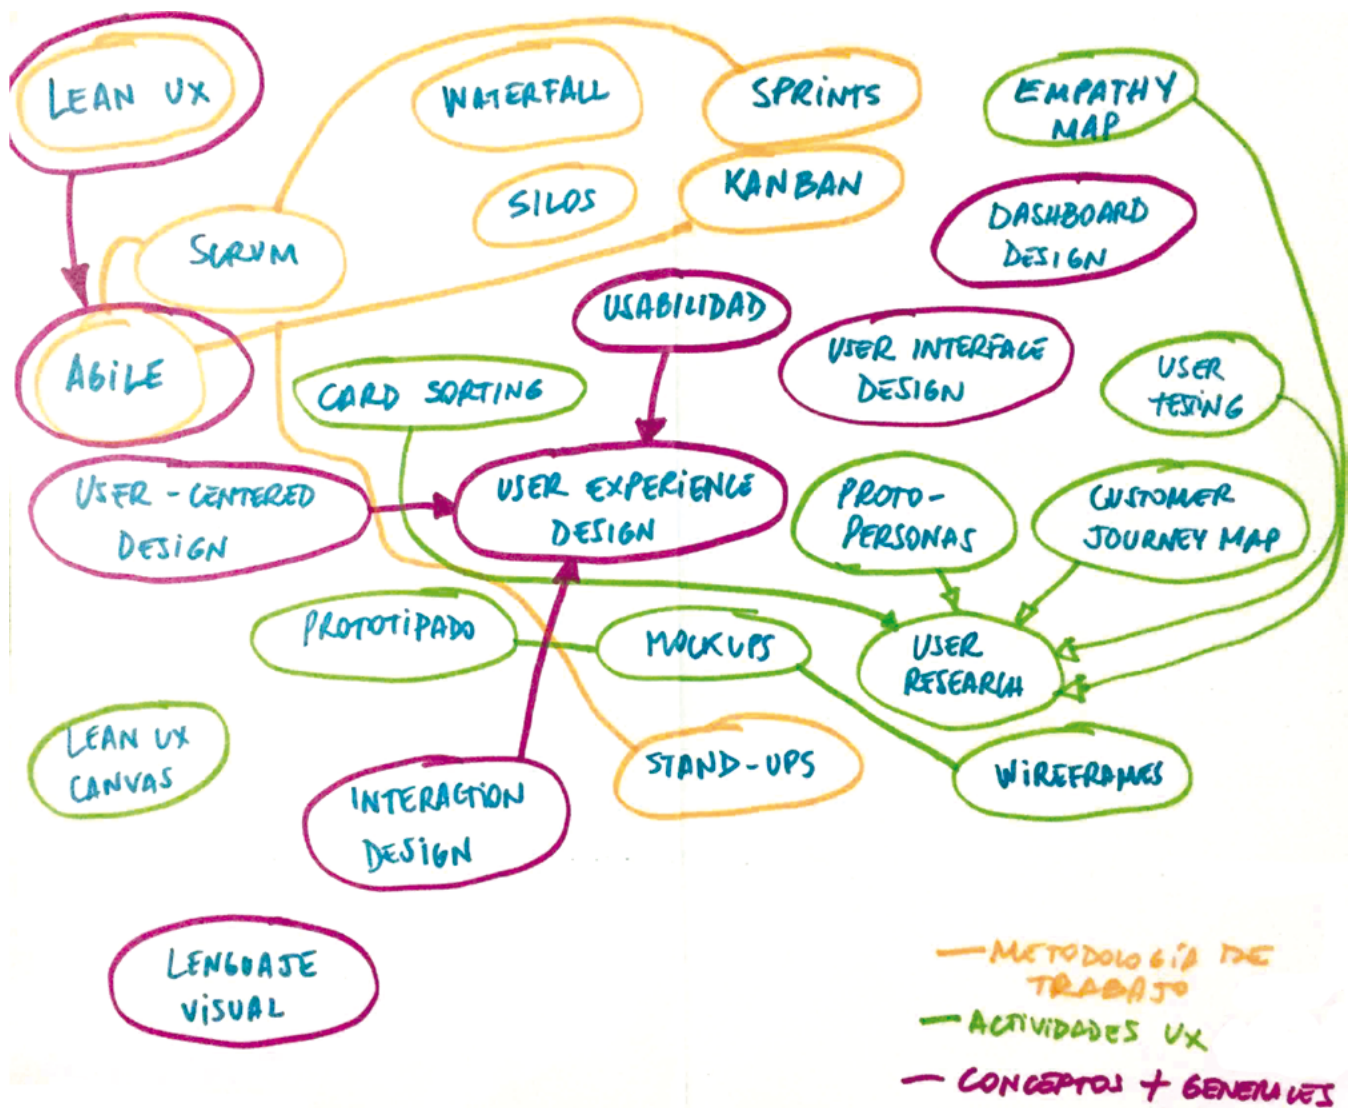 LEAN UX
WATERFALL
SPRINTS
EMPATHY
MAP
KANBAN
SILOS
DASHBOARD
DESIGN
SCRUM
USABILIDAD
USER INTERFACE
DESIGN
USER
TESTING
AGILE
CARD SORTING
USER - CENTERED
DESIGN
USER EXPERIENCE
DESIGN
PROTO-
PERSONAS
CUSTOMER
JOURNEY MAP
PROTOTIPADO
MOCKUPS
USER
RESEARCH
LEAN UX
CANVAS
STAND-UPS
WIREFRAMES
INTERACTION
DESIGN
LENGUAJE
VISUAL
— METODOLOGÍA DE
TRABAJO
— ACTIVIDADES UX
— CONCEPTOS + GENERALES